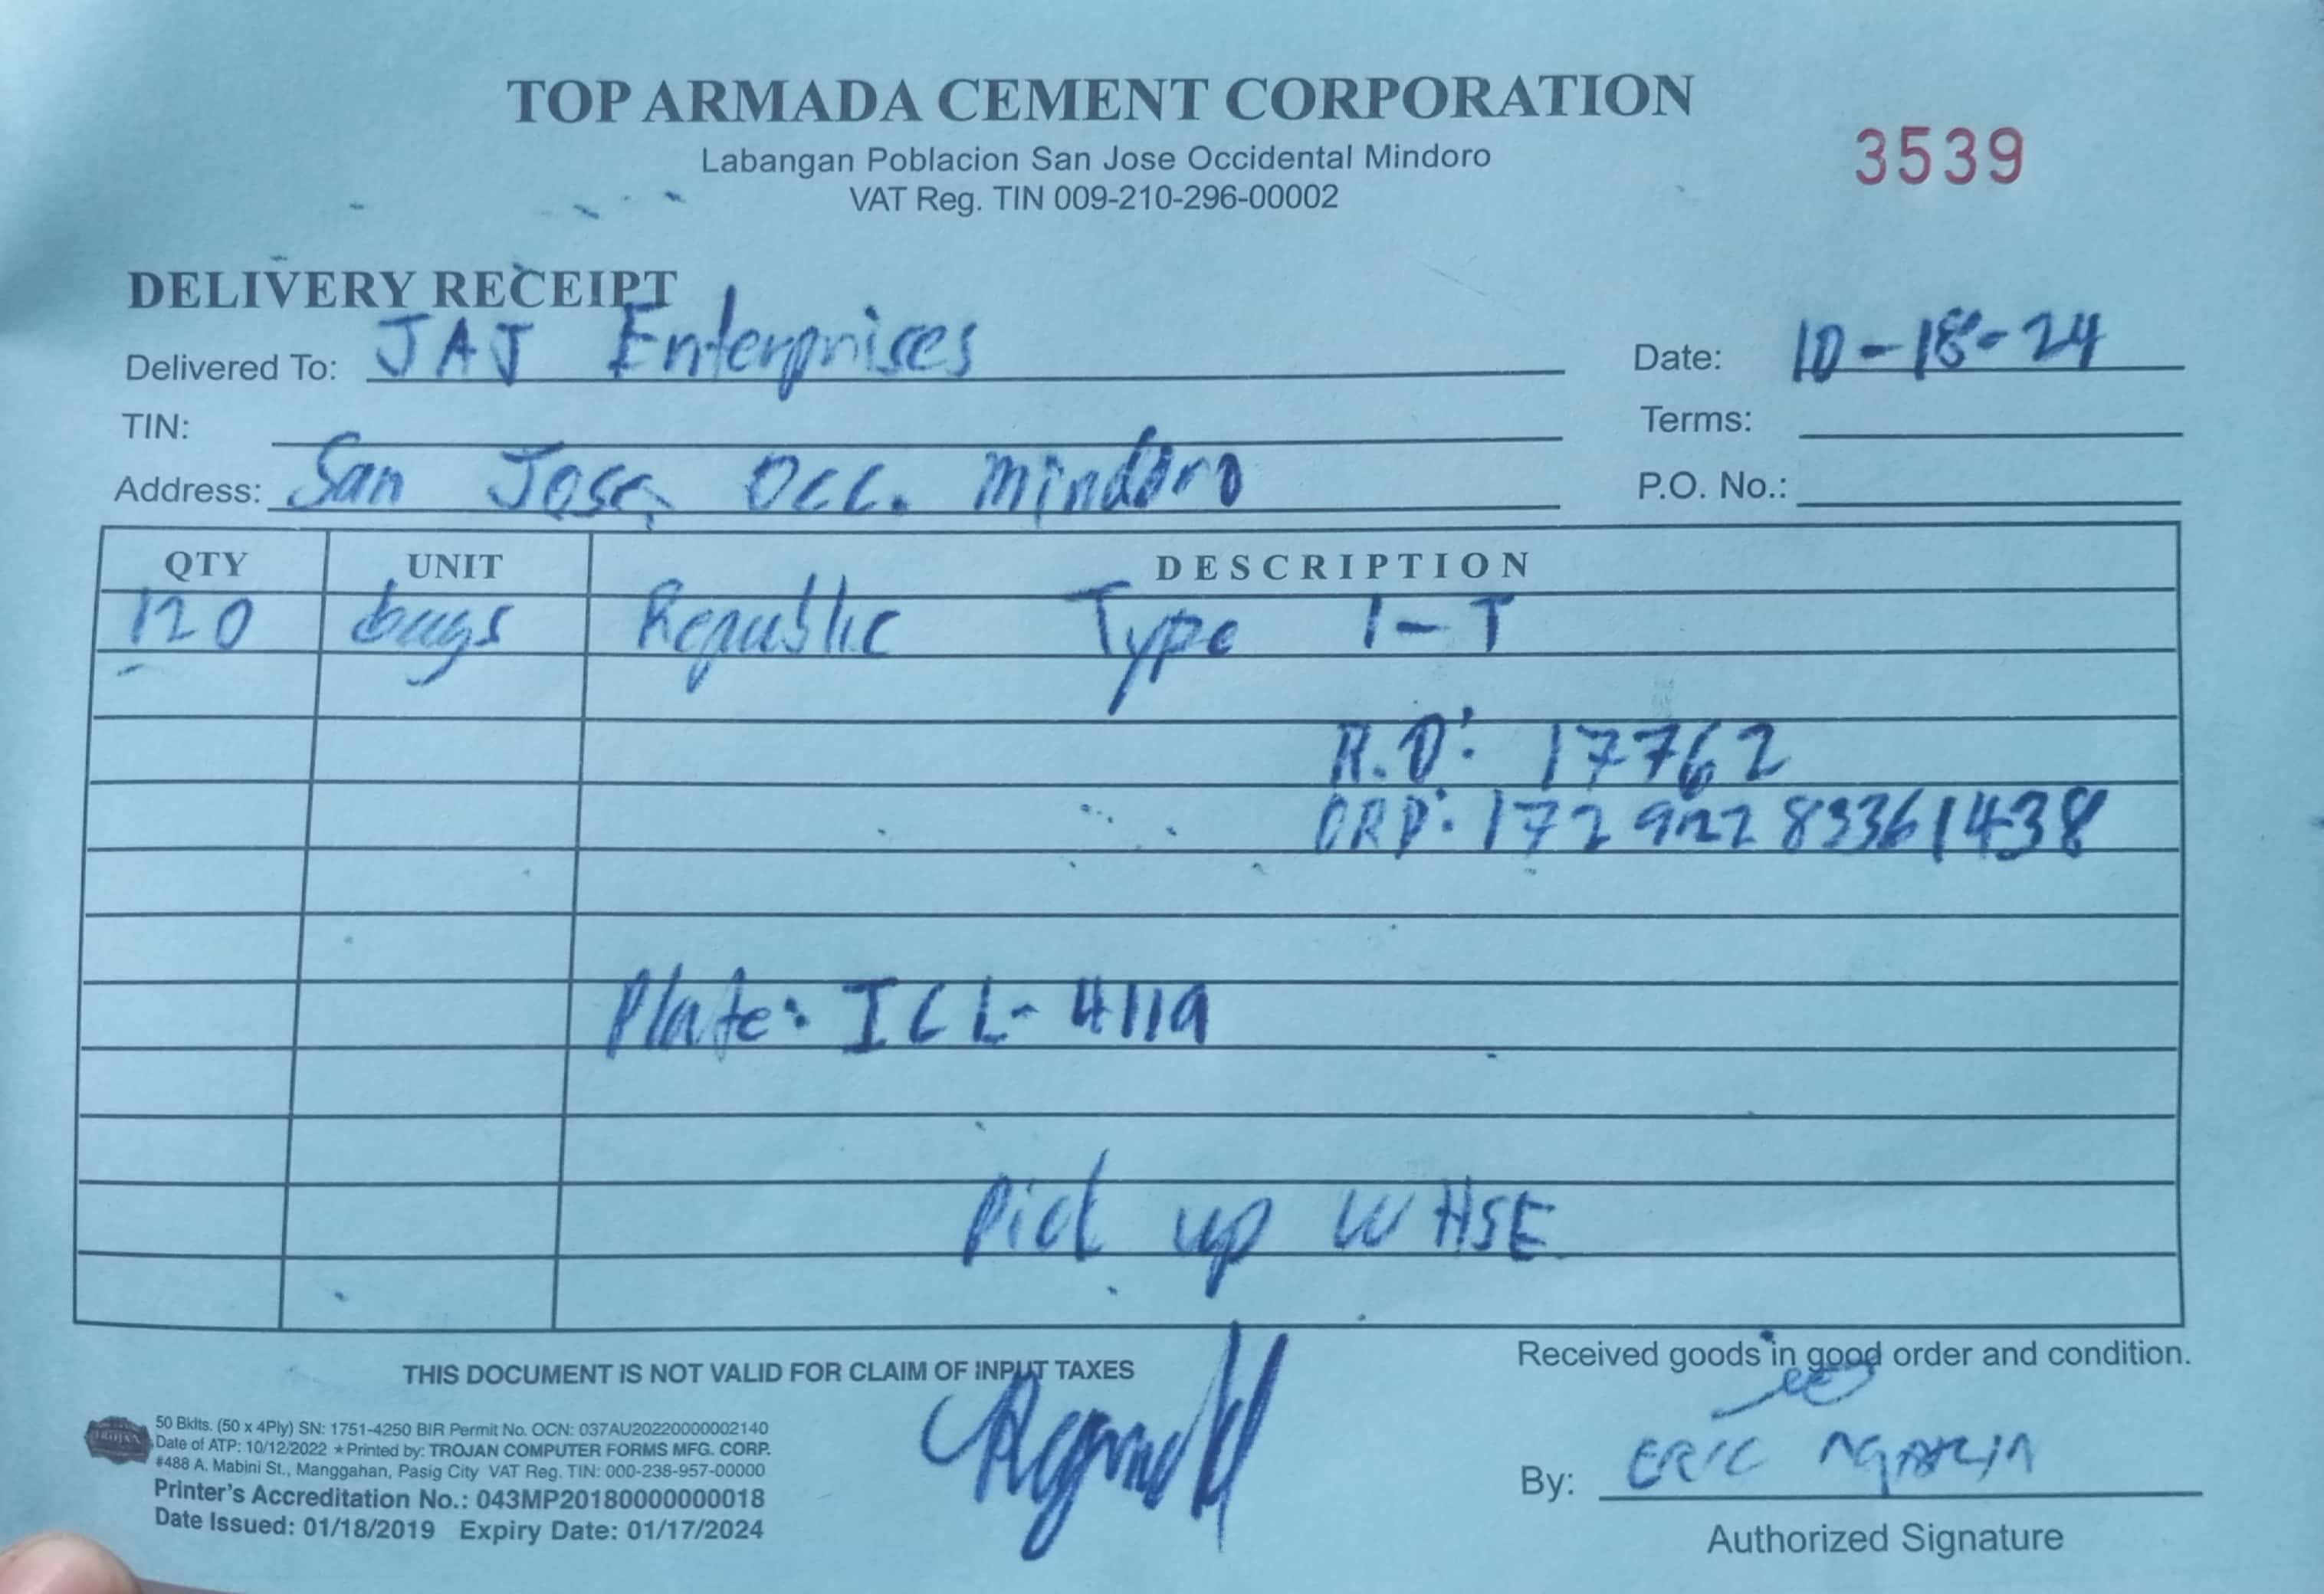 TOP ARMADA CEMENT CORPORATION
Labangan Poblacion San Jose Occidental Mindoro
3539
VAT Reg. TIN 009-210-296-00002
DELIVERY RECEIPT
Delivered To: JAJ Enterprises
Date: 10-18-24
TIN:
Terms:
Address: San Jose, Occ. Mindoro
P.O. No.:
QTY UNIT DESCRIPTION
120 bags Republic Type 1-T
R.O: 17762
ORP: 17292283361438
Plate: ICL-4119
Pick up WHSE
THIS DOCUMENT IS NOT VALID FOR CLAIM OF INPUT TAXES
Received goods in good order and condition.
50 Bklts. (50 x 4Ply) SN: 1751-4250 BIR Permit No. OCN: 037AU20220000002140
Date of ATP: 10/12/2022 ★Printed by: TROJAN COMPUTER FORMS MFG. CORP.
#488 A. Mabini St., Manggahan, Pasig City VAT Reg. TIN: 000-238-957-00000
Printer's Accreditation No.: 043MP20180000000018
Date Issued: 01/18/2019 Expiry Date: 01/17/2024
By: ERIC
Authorized Signature